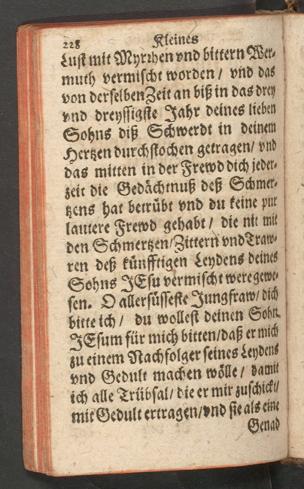 228 Kleines
Lust mit Myrrhen vnd bittern Wer-
muth vermischt worden / vnd das
von derselben Zeit an biß in das drey
vnd dreyssigste Jahr deines lieben
Sohns diß Schwerdt in deinem
Hertzen durchstochen getragen / vnd
das mitten in der Frewd dich jeder-
zeit die Gedächtnuß deß Schmer-
tzens hat betrübt vnd du keine pur
lautere Frewd gehabt / die nit mit
den Schmertzen / Zittern vnd Traw-
ren deß künfftigen Leydens deines
Sohns JEsu vermischt were gewe-
sen. O allersüsseste Jungfraw / dich
bitte ich / du wollest deinen Sohn
JEsum für mich bitten / daß er mich
zu einem Nachfolger seines Leydens
vnd Gedult machen wölle / damit
ich alle Trübsal / die er mir zuschickt /
mit Gedult ertragen / vnd sie als eine
Genad